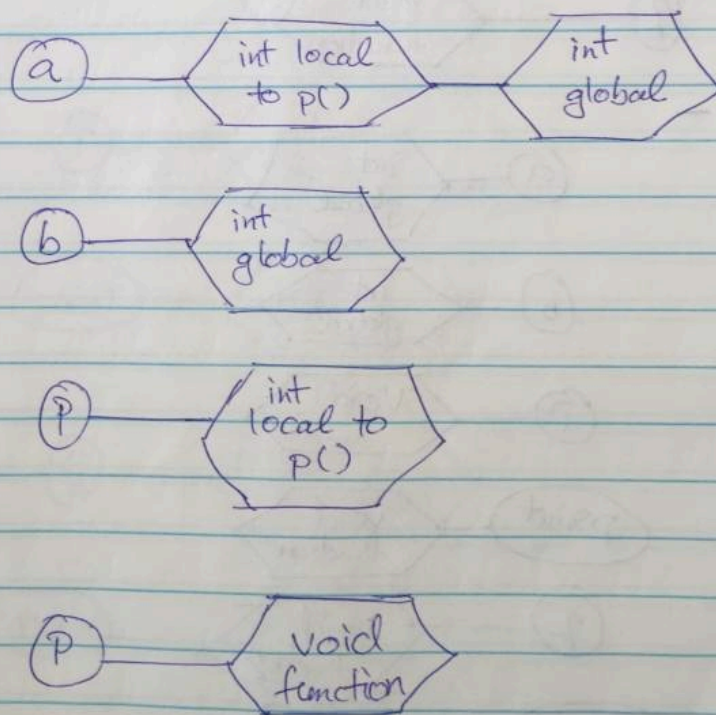 a int local to p() int global
b int global
p int local to p()
p void function